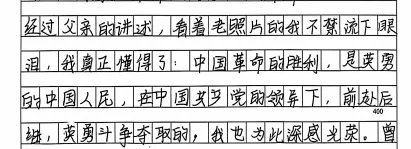 经过父亲的讲述，看着老照片的我不禁流下眼
泪，我真正懂得了：中国革命的胜利，是英勇
的中国人民，在中国共产党的领导下，前赴后
400
继，英勇斗争夺取的，我也为此深感光荣。曾